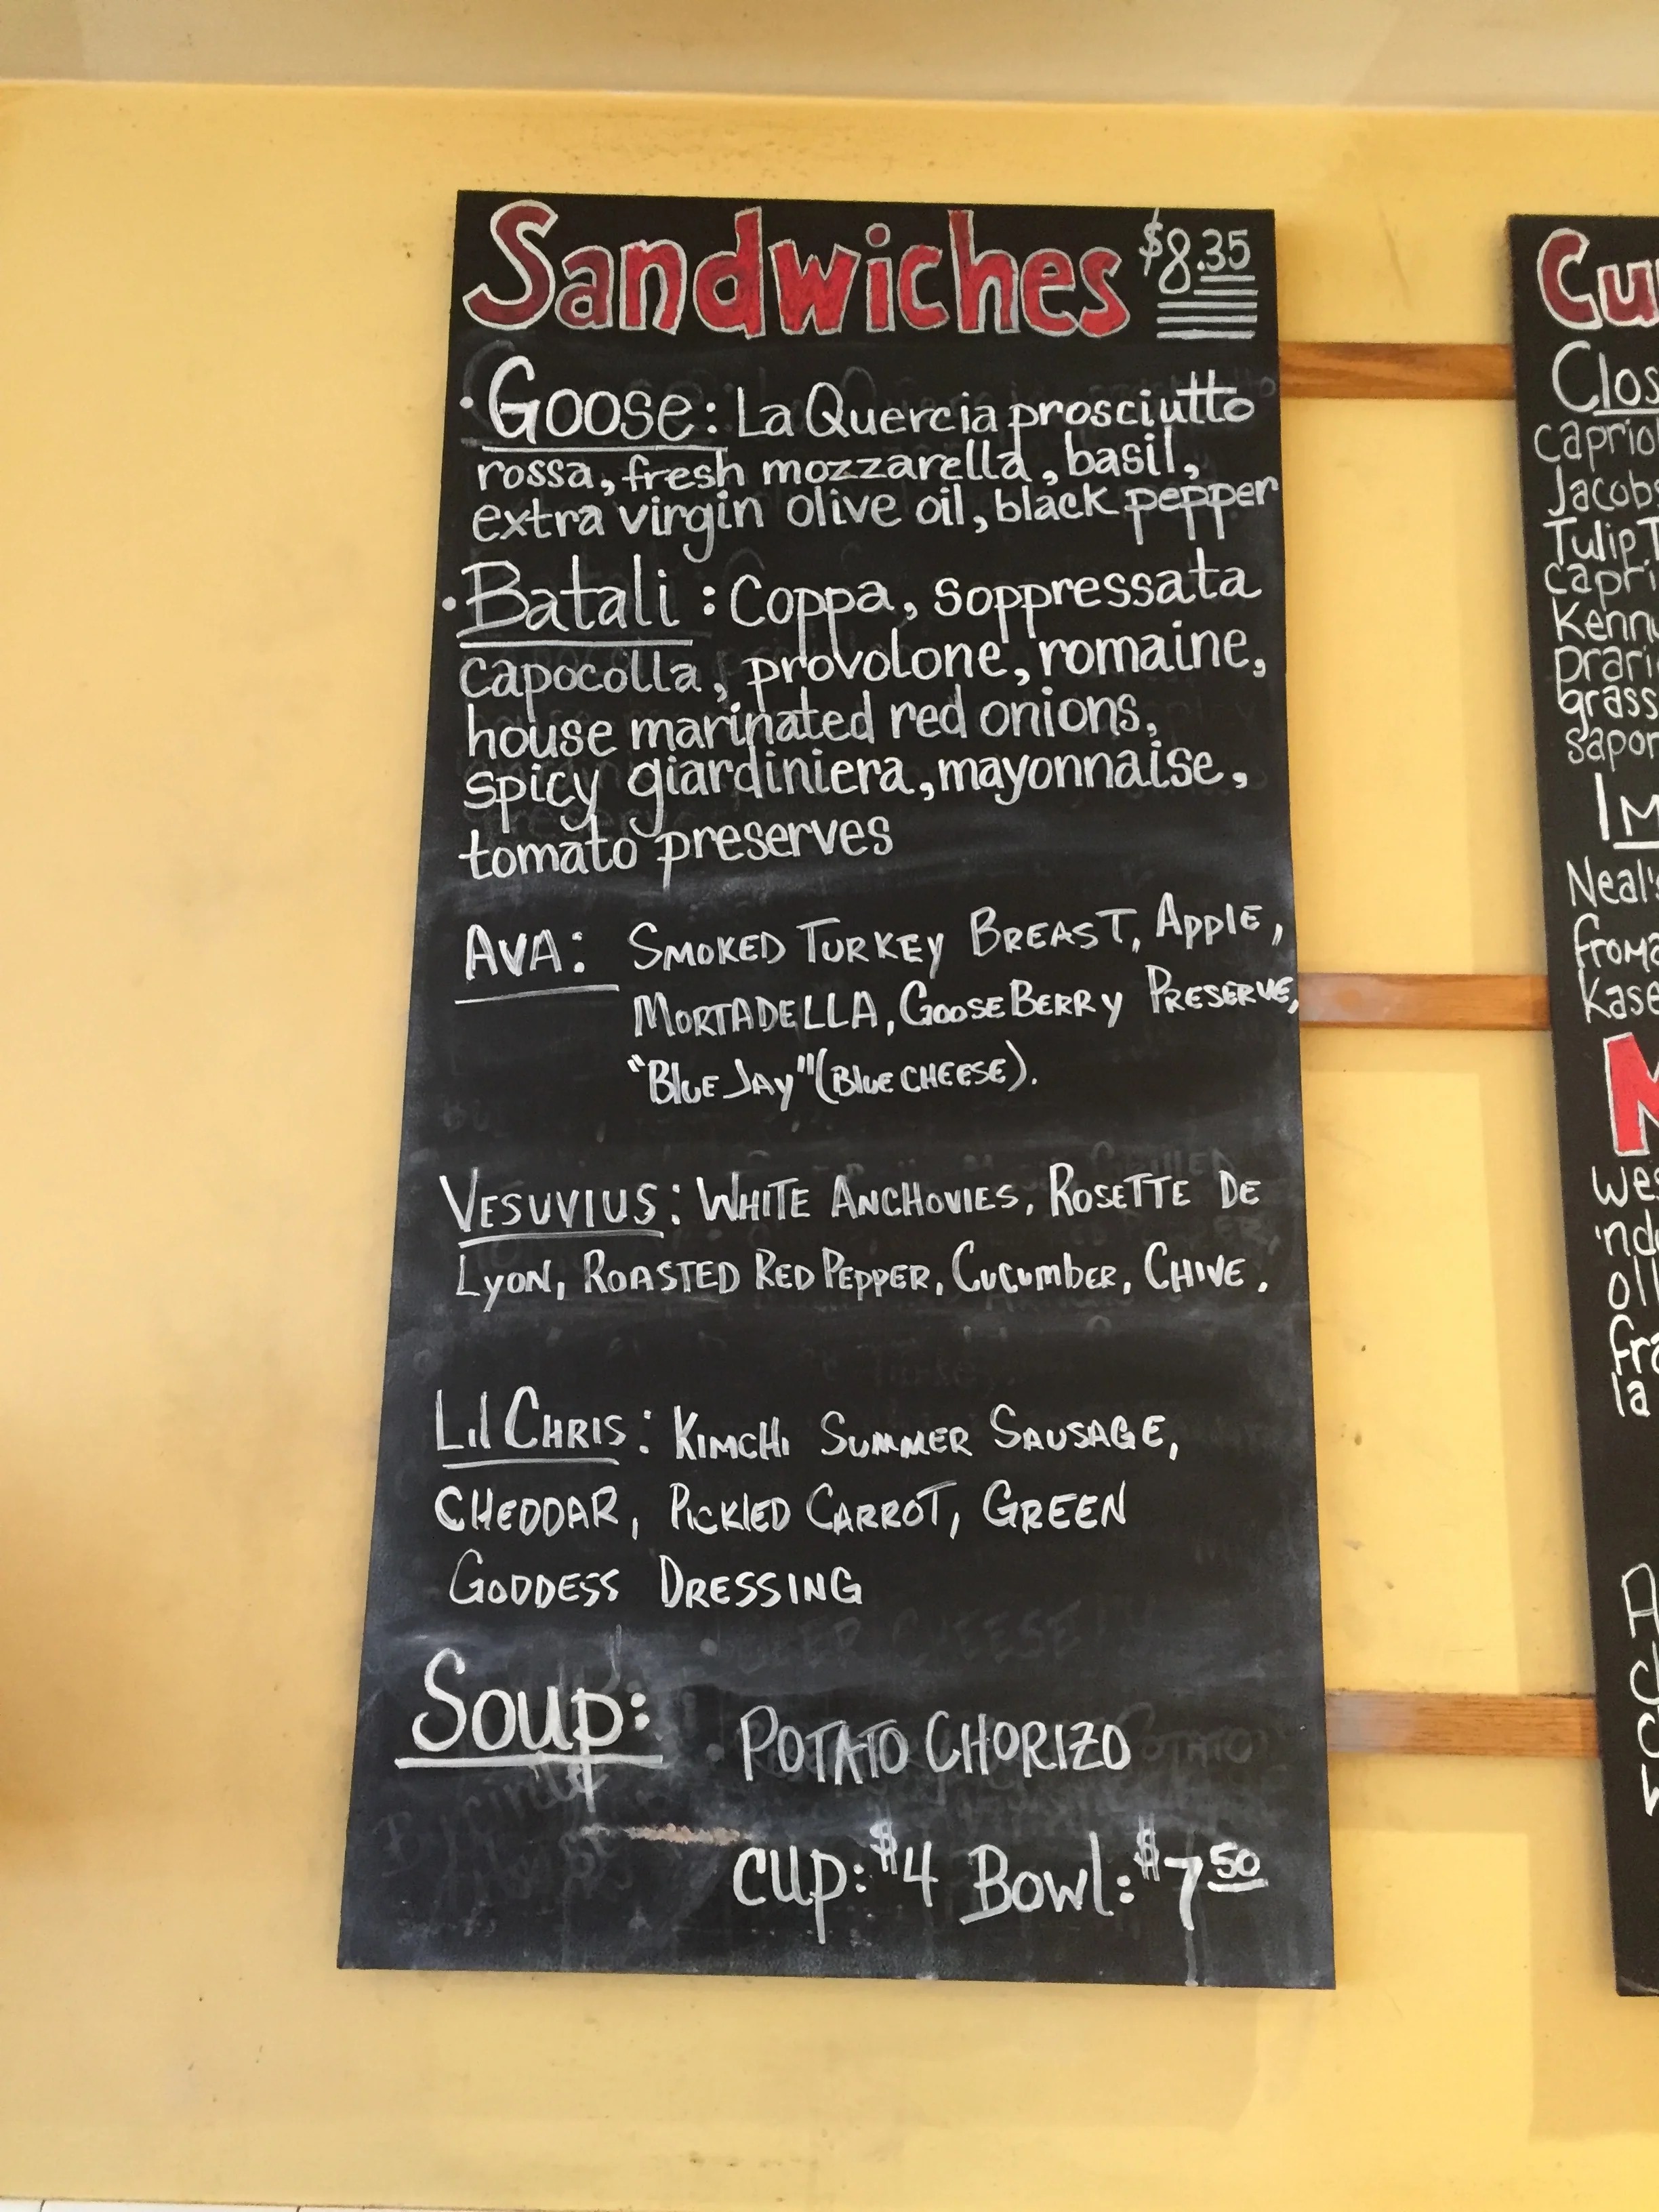 Sandwiches $8.35
• Goose: La Quercia prosciutto
rossa, fresh mozzarella, basil,
extra virgin olive oil, black pepper
• Batali: Coppa, soppressata
capocolla, provolone, romaine,
house marinated red onions,
spicy giardiniera, mayonnaise,
tomato preserves
AVA: SMOKED TURKEY BREAST, APPLE,
MORTADELLA, GOOSEBERRY PRESERVE,
"BLUE JAY" (BLUE CHEESE).
VESUVIUS: WHITE ANCHOVIES, ROSETTE DE
LYON, ROASTED RED PEPPER, CUCUMBER, CHIVE.
LIL CHRIS: KIMCHI SUMMER SAUSAGE,
CHEDDAR, PICKLED CARROT, GREEN
GODDESS DRESSING
Soup: POTATO CHORIZO
cup: $4 Bowl: $7 50
Cu
Clos
capriol
Jacobs
Tulip T
capri
Kenny
prari
grass
sapor
IM
Neal's
froma
Kase
M
wes
indu
oll
fra
la